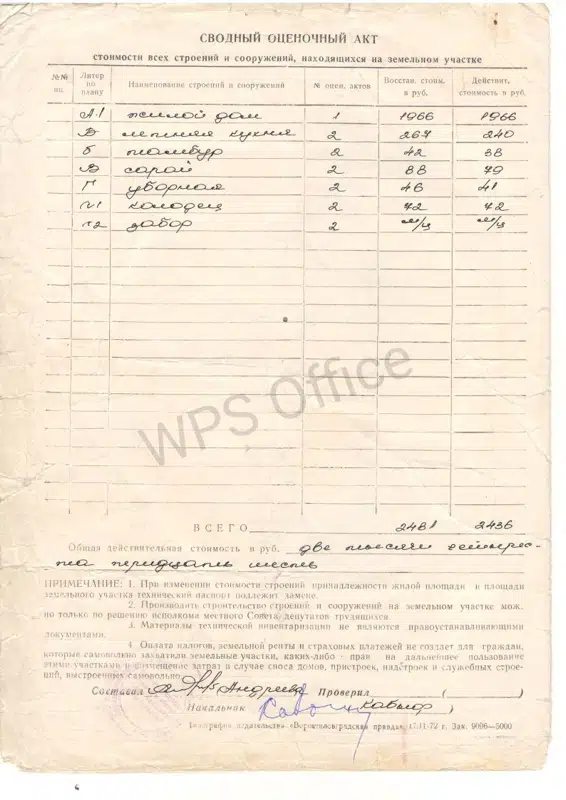 СВОДНЫЙ ОЦЕНОЧНЫЙ АКТ
стоимости всех строений и сооружений, находящихся на земельном участке
№№ пп. Литер по плану Наименование строений и сооружений № оцен. актов Восстан. стоим. в руб. Действит. стоимость в руб.
А1 жилой дом 1 1966 1966
Б летняя кухня 2 267 240
б тамбур 2 42 38
В сарай 2 88 79
Г уборная 2 46 41
N1 колодец 2 72 72
N2 забор 2 м/ц м/ц
WPS Office
ВСЕГО 2481 2436
Общая действительная стоимость в руб. две тысячи четырес-
та тридцать шесть
ПРИМЕЧАНИЕ: 1. При изменении стоимости строений принадлежности жилой площади и площади
земельного участка технический паспорт подлежит замене.
2. Производить строительство строений и сооружений на земельном участке мож.
но только по решению исполкома местного Совета депутатов трудящихся.
3. Материалы технической инвентаризации не являются правоустанавливающими
документами.
4. Оплата налогов, земельной ренты и страховых платежей не создает для граждан,
которые самовольно захватили земельные участки, каких-либо прав на дальнейшее пользование
этими участками и возмещение затрат в случае сноса домов, пристроек, надстроек и служебных строе-
ний, выстроенных самовольно.
Составил Андреева Проверил ( )
Начальник
Типография издательства «Ворошиловградская правда» 17.11-72 г. Зак. 9096—5000